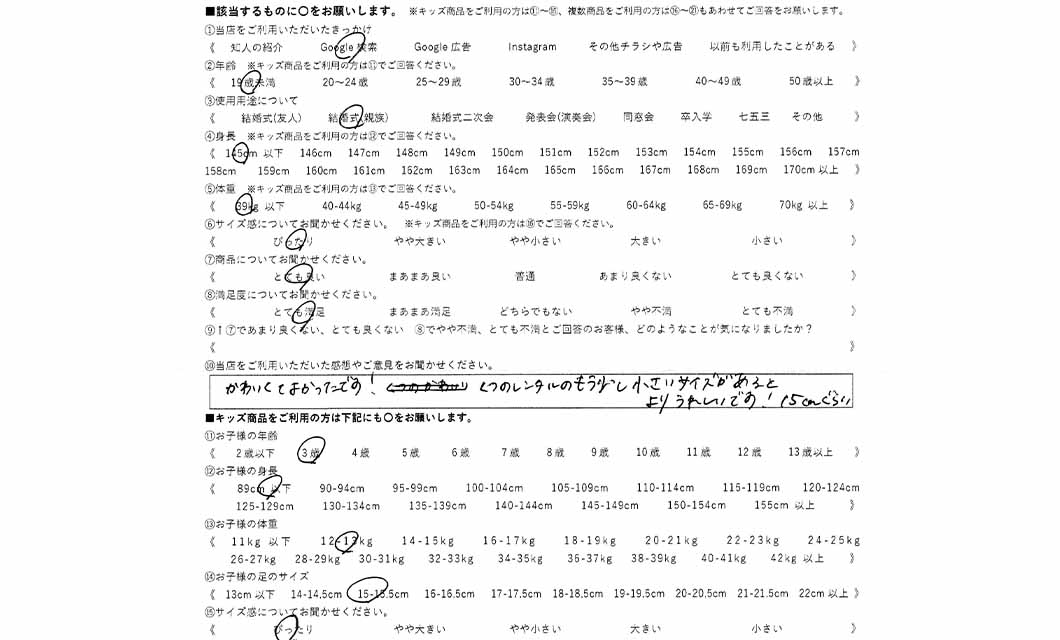 ■該当するものに〇をお願いします。 ※キッズ商品をご利用の方は⑪〜⑮、複数商品をご利用の方は⑯〜㉑もあわせてご回答をお願いします。
①当店をご利用いただいたきっかけ
《 知人の紹介 Google 検索 Google 広告 Instagram その他チラシや広告 以前も利用したことがある 》
②年齢 ※キッズ商品をご利用の方は⑪でご回答ください。
《 19歳未満 20〜24歳 25〜29歳 30〜34歳 35〜39歳 40〜49歳 50歳以上 》
③使用用途について
《 結婚式(友人) 結婚式(親族) 結婚式二次会 発表会(演奏会) 同窓会 卒入学 七五三 その他 》
④身長 ※キッズ商品をご利用の方は⑫でご回答ください。
《 145cm 以下 146cm 147cm 148cm 149cm 150cm 151cm 152cm 153cm 154cm 155cm 156cm 157cm
158cm 159cm 160cm 161cm 162cm 163cm 164cm 165cm 166cm 167cm 168cm 169cm 170cm 以上 》
⑤体重 ※キッズ商品をご利用の方は⑬でご回答ください。
《 39kg 以下 40-44kg 45-49kg 50-54kg 55-59kg 60-64kg 65-69kg 70kg 以上 》
⑥サイズ感についてお聞かせください。 ※キッズ商品をご利用の方は⑮でご回答ください。
《 ぴったり やや大きい やや小さい 大きい 小さい 》
⑦商品についてお聞かせください。
《 とても良い まあまあ良い 普通 あまり良くない とても良くない 》
⑧満足度についてお聞かせください。
《 とても満足 まあまあ満足 どちらでもない やや不満 とても不満 》
⑨↑⑦であまり良くない、とても良くない ⑧でやや不満、とても不満とご回答のお客様、どのようなことが気になりましたか？
《 》
⑩当店をご利用いただいた感想やご意見をお聞かせください。
かわいくてよかったです! くつのレンタルのもう少し小さいサイズがあると
よりうれしいです! 15cmぐらい
■キッズ商品をご利用の方は下記にも〇をお願いします。
⑪お子様の年齢
《 2歳以下 3歳 4歳 5歳 6歳 7歳 8歳 9歳 10歳 11歳 12歳 13歳以上 》
⑫お子様の身長
《 89cm 以下 90-94cm 95-99cm 100-104cm 105-109cm 110-114cm 115-119cm 120-124cm
125-129cm 130-134cm 135-139cm 140-144cm 145-149cm 150-154cm 155cm 以上 》
⑬お子様の体重
《 11kg 以下 12-13kg 14-15kg 16-17kg 18-19kg 20-21kg 22-23kg 24-25kg
26-27kg 28-29kg 30-31kg 32-33kg 34-35kg 36-37kg 38-39kg 40-41kg 42kg 以上 》
⑭お子様の足のサイズ
《 13cm 以下 14-14.5cm 15-15.5cm 16-16.5cm 17-17.5cm 18-18.5cm 19-19.5cm 20-20.5cm 21-21.5cm 22cm 以上 》
⑮サイズ感についてお聞かせください。
《 ぴったり やや大きい やや小さい 大きい 小さい 》